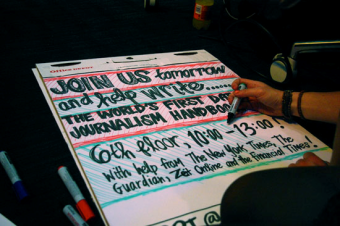 OFFICE DEPOT
JOIN US tomorrow
and help write......
THE WORLD'S FIRST DATA
JOURNALISM HANDBOOK
6th floor, 10:00-13:00!
With help from The New York Times, The
Guardian, Zeit Online and the Financial Times!